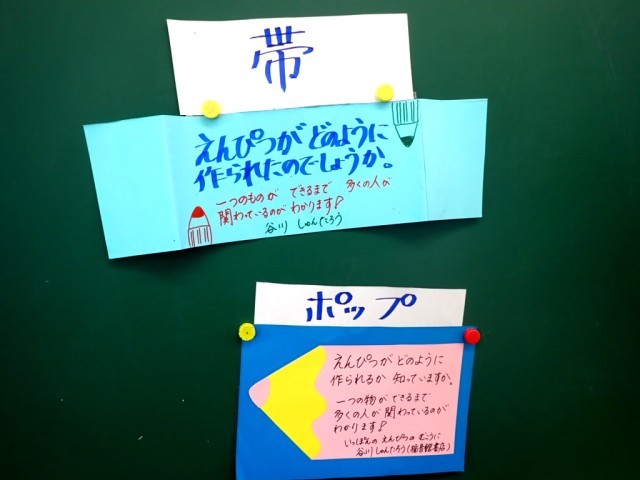 帯
えんぴつが どのように
作られたのでしょうか。
一つのものが できるまで 多くの人が
関わっているのが わかります！
谷川 しゅんたろう
ポップ
えんぴつが どのように
作られるか 知っていますか。
一つの物が できるまで
多くの人が 関わっているのが
わかります！
いっぽんの えんぴつの むこうに
谷川 しゅんたろう（福音館書店）